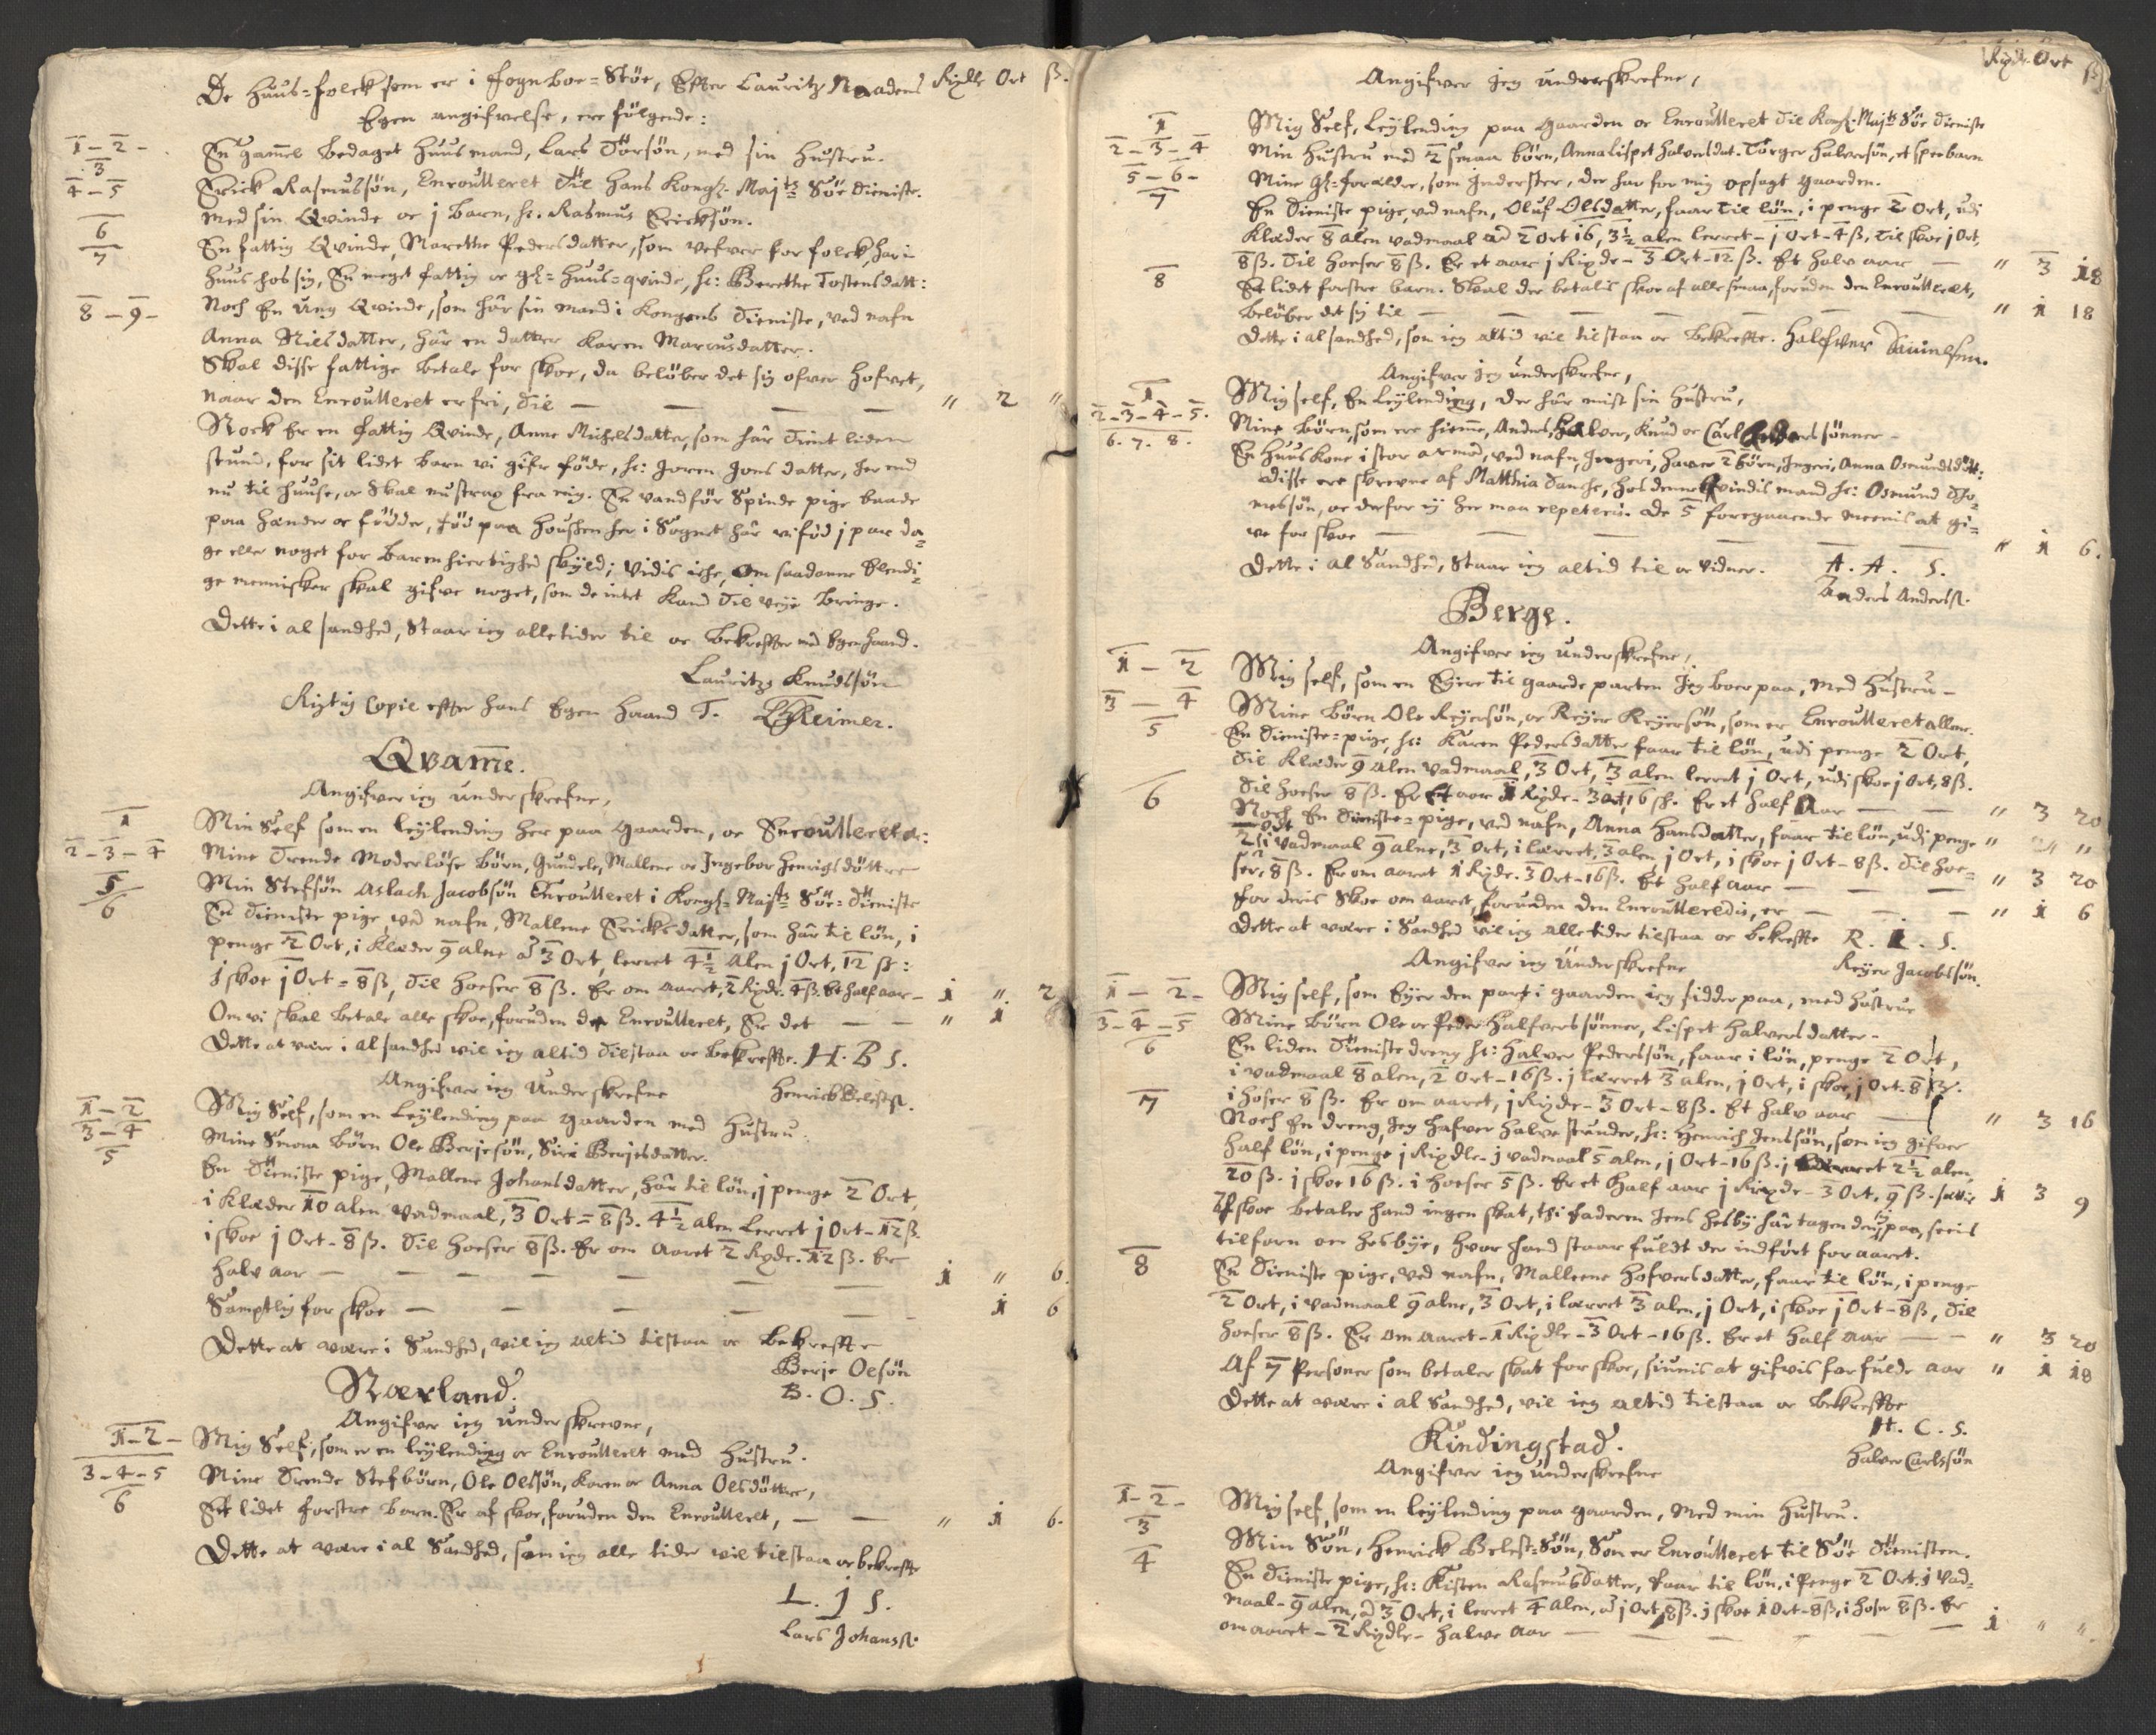 De Huus-folck som er i sognboe-Støe, Efter Lauritz Naadens Rixdlr Ort ß.
Egen angifvelse, ere følgende:
1-2- En gammel bedaget Huusmand, Lars Törsön, med sin Hustru.
3
4-5 Erick Rasmussön, Enroulleret til hans Kongl: Majts Söe dieniste.
med sin Qvinde oc j barn, h: Rasmus Ericksön.
6 En fattig Qvinde, Marethe Pedersdatter, som vefver for folck, har i
7 huus hos sig, En meget fattig oc gl: huus-qvinde, h: Berethe Tostensdatt:
8-9- Noch En ung Qvinde, som här sin mand i Kongens dieniste, ved nafn
Anna Nilsdatter, här en datter Karen Marcusdatter.
Skal disse fattige betale for skoe, da belöber det sig ofver hofvet,
naar den Enroulleret er fri, til — — — — " 2 "
Nock Er en fattig Qvinde, Anne Michelsdatter, som här dient liden
stund, for sit lidet barn vi gifr föde, h: Joren Jonsdatter, her end
nu til huuse, oc skal nu strax fra mig. En vanför Spinde pige baade
paa hænder oc födder, föd paa Houshen her i Sognet här vi föd j par da-
ge eller noget for barmhiertighed skyld; vidis iche, om saadanne Elendi-
ge mennisker skal gifve noget, som de intet kand til veye bringe.
Dette i al sandhed, Staar ieg alle tider til oc bekrefter med Egen haand.
Lauritz Knudssön
Rigtig Copie efter hans Egen haand T. Reimer.
Qvamme.
Angifver ieg underskrefne,
1 Min Self som en leylending her paa gaarden, oc Enroulleret er:
2-3-4 Mine trende Moderlöse börn, Gundele, Mallene oc Ingebor Henrigsdöttre
5 Min Stefsön Aslach Jacobsön Enroulleret i Kongl: Majts Söe-dieniste
6 En dieniste pige, ved nafn, Mallene Ericksdatter, som här til lön, i
penge 2 Ort, i klæder 9 alne ad 3 Ort, lerret 4½ alen j Ort, 12 ß:
j skoe j Ort-8ß, til hoeser 8ß. Er om aaret, 2 Rixdr. 4ß. Et half aar- 1 " 2
Om vi skal betale alle skoe, foruden den Enroulleret, Er det — — " 1
Dette at være i al sandhed vil ieg altid tilstaa oc bekrefte. H. B S.
Angifver ieg underskrefne Henrick Belestß.
1-2 Mig Self, som en leylending paa gaarden med hustru.
3-4 Mine Smaa börn Ole Berjesön, Siri Berjesdatter.
5 En dieniste pige, Mallene Johansdatter, här til lön, j penge 2 Ort,
i klæder 10 alen vadmaal, 3 Ort-8ß. 4½ alen lerret j Ort-12ß
i skoe j Ort-8ß. til hoeser 8ß. Er om aaret 2 Rixdr. 12ß. Er
halv aar — — — — — — 1 " 6.
Samptlig for skoe — — — — — 1 6
Dette at være i Sandhed, vil ieg altid tilstaa oc bekrefte
Berje Olsön
B. O. S.
Nærland.
Angifver ieg underskrevne,
1-2- Mig Self, som er en leylending oc Enroulleret med hustru.
3-4-5 Mine trende Stefbörn, Ole Olssön, Karen oc Anna Olsdöttre,
6 Ett lidet forstre barn. Er af skoe, foruden den Enroulleret, — — " 1 6.
Dette at være i al Sandhed, som ieg alle tider vil tilstaa oc bekrefte
L. J S.
Lars Johansß.
Rixdr. Ort ß
Angifver ieg underskrefne,
1 Mig Self, leylending paa gaarden oc Enroulleret til Kongl: Majts Söe dieniste
2-3-4 Min hustru med 2 smaa börn, Anna lispet halversdat. Torger halversön, et spee barn
5-6- Mine gl: forældre, som inderster, der har for mig opsagt gaarden.
7 En dieniste pige, ved nafn, Oluf Olsdatter, faar til lön, i penge 2 Ort, udi
klæder 8 alen vadmaal ad 2 Ort 16, 3½ alen lerret-j Ort-4ß, til skoe j Ort,
8ß. til hoeser 8ß. Er et aar j Rixdr-3 Ort-12ß. Et halv aar — " 3 18
8 Et lidet forstre barn. Skal der betalis skoe af alle smaa, foruden den Enroulleret,
belöber det sig til — — — — — — " 1 18
Dette i al sandhed, som ieg altid vil tilstaa oc bekrefte. Halfver Saunelsen.
Angifver ieg underskrefne,
1 Mig self, En leylending, der här mist sin hustru,
2-3-4-5. Mine börn, som ere hieme, Anders, Halver, Knud oc Carl Anders sönner-
6. 7. 8. En huus kone i stor armod, ved nafn, Ingeri, haver 2 börn, Ingeri, Anna Osmundsdött:
disse ere skrevne af Matthia dansche, hos denne Qvindis mand h: Osmund Tho-
massön, oc derfor ey her maa repeteris. De 5 foregaaende meenis at gi-
ve for skoe — — — — — " 1 6.
Dette i al Sandhed, Staar ieg altid til oc vidner. A. A. S.
Anders Andersß.
Berge.
Angifver ieg underskrefne,
1-2 Mig self, som en Eyere til gaarde parten Jeg boer paa, med hustru-
3-4 Mine börn Ole Reyersön, oc Reyer Reyersön, som er Enroulleret allene.
5 En dieniste-pige, h: Karen Pedersdatter faar til lön, udi penge 2 Ort,
til klæder 9 alen vadmaal, 3 Ort, 3 alen lerret j Ort, udi skoe j Ort, 8ß.
til hoeser 8ß. Er Et aar 1 Rixdr-3 Ort, 16 sh. Er et half Aar — — " 3 20
6 Noch En dieniste-pige, ved nafn, Anna Hansdatter, faar til lön, udi penge " " "
2 Ort i vadmaal 9 alne, 3 Ort, i lærret, 3 alen, j Ort, i skoe j Ort-8ß. til hoe-
ser, 8ß. Er om aaret 1 Rixdr. 3 Ort-16ß. Et half aar — — — " 3 20
for deris Skoe om aaret, foruden den Enroulleredis, er — — — " 1 6
Dette at være i Sandhed vil ieg alle tider tilstaa oc bekrefte R. I. S.
Angifver ieg underskrefne Reyer Jacobssön.
1-2- Mig self, som Eyer den part i gaarden ieg sidder paa, med hustrue
3-4-5 Mine börn Ole oc Peder Halfvers sönner, Lispet Halversdatter-
6 En liden dieniste dreng h: Halver Pederssön, faar i lön, penge 2 Ort,
i vadmaal 8 alen, 2 Ort-16ß. j lærret 3 alen, j Ort, i skoe, j Ort-8ß.
i hoser 8ß. Er om aaret, j Rixdr-3 Ort-8ß. Et halv aar — " 3 16
7 Noch En dreng, Jeg hafver halve stunder, h: Henrich Jenssön, som ieg gifver
half lön, i penge j Rixdlr-j vadmaal 5 alen, j Ort-16ß. j lærret 2½ alen,
20ß. j skoe 16ß. i hoeser 5ß. Er et half aar j Rixdr-3 Ort, 9ß. sætis 1 3 9
Af skoe betaler hand ingen skat, thi faderen Jens Hesby här tagen den sig paa, seeis
tilforn om Hesbye, hvor hand staar fuldt der indfört for aaret.
8 En dieniste pige, ved nafn, Malleene Hofversdatter, faar til lön, i penge
2 Ort, i vadmaal 9 alne, 3 Ort, i lærret 3 alen, j Ort, i skoe j Ort-8ß, til
hoeser 8ß. Er om aaret-1 Rixdlr-3 Ort-16ß. Er et half aar — — " 3 20
Af 7 Personer som betaler skat for skoe, siunis at gifvis for fulde aar " 1 18
Dette at være i al Sandhed, vil ieg altid tilstaa oc bekrefte
H. C. S.
Halver Carlssön
Kindingstad.
Angifver ieg underskrefne
1-2- Mig self, som en leylending paa gaarden, med min hustru.
3 Min Sön, Henrick Belest-Sön, Som er Enroulleret til Söe dienisten.
4 En dieniste pige, h: Kisten Rasmusdatter, faar til lön, i penge 2 Ort. j vad-
maal-9 alen, ad 3 Ort, i lerret 4 alen, ad j Ort, 8ß. j skoe 1 Ort-8ß, i hoser 8ß. Er
om aaret-2 Rixdlr- halve aar — — — — — 1 " "